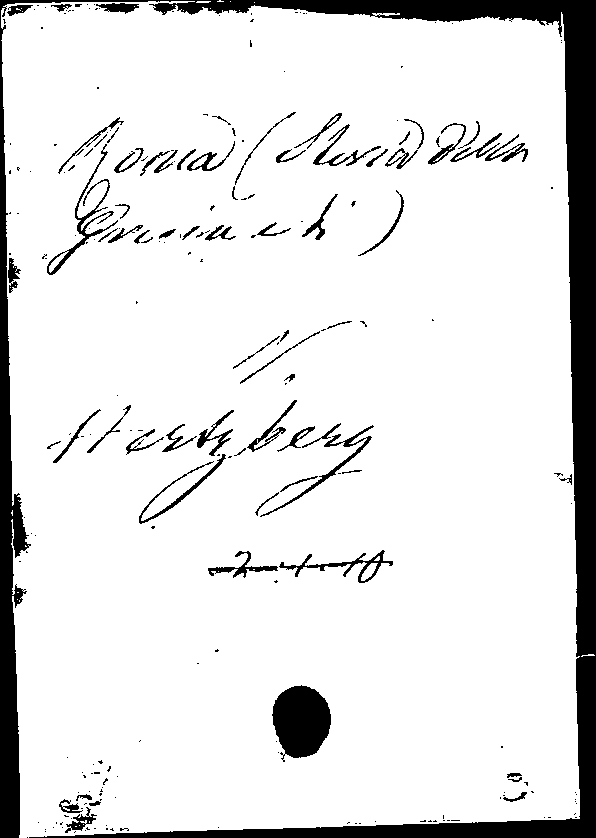 Roma (Storia della
Grecia e di)
V.
Hertzberg
2.1.10